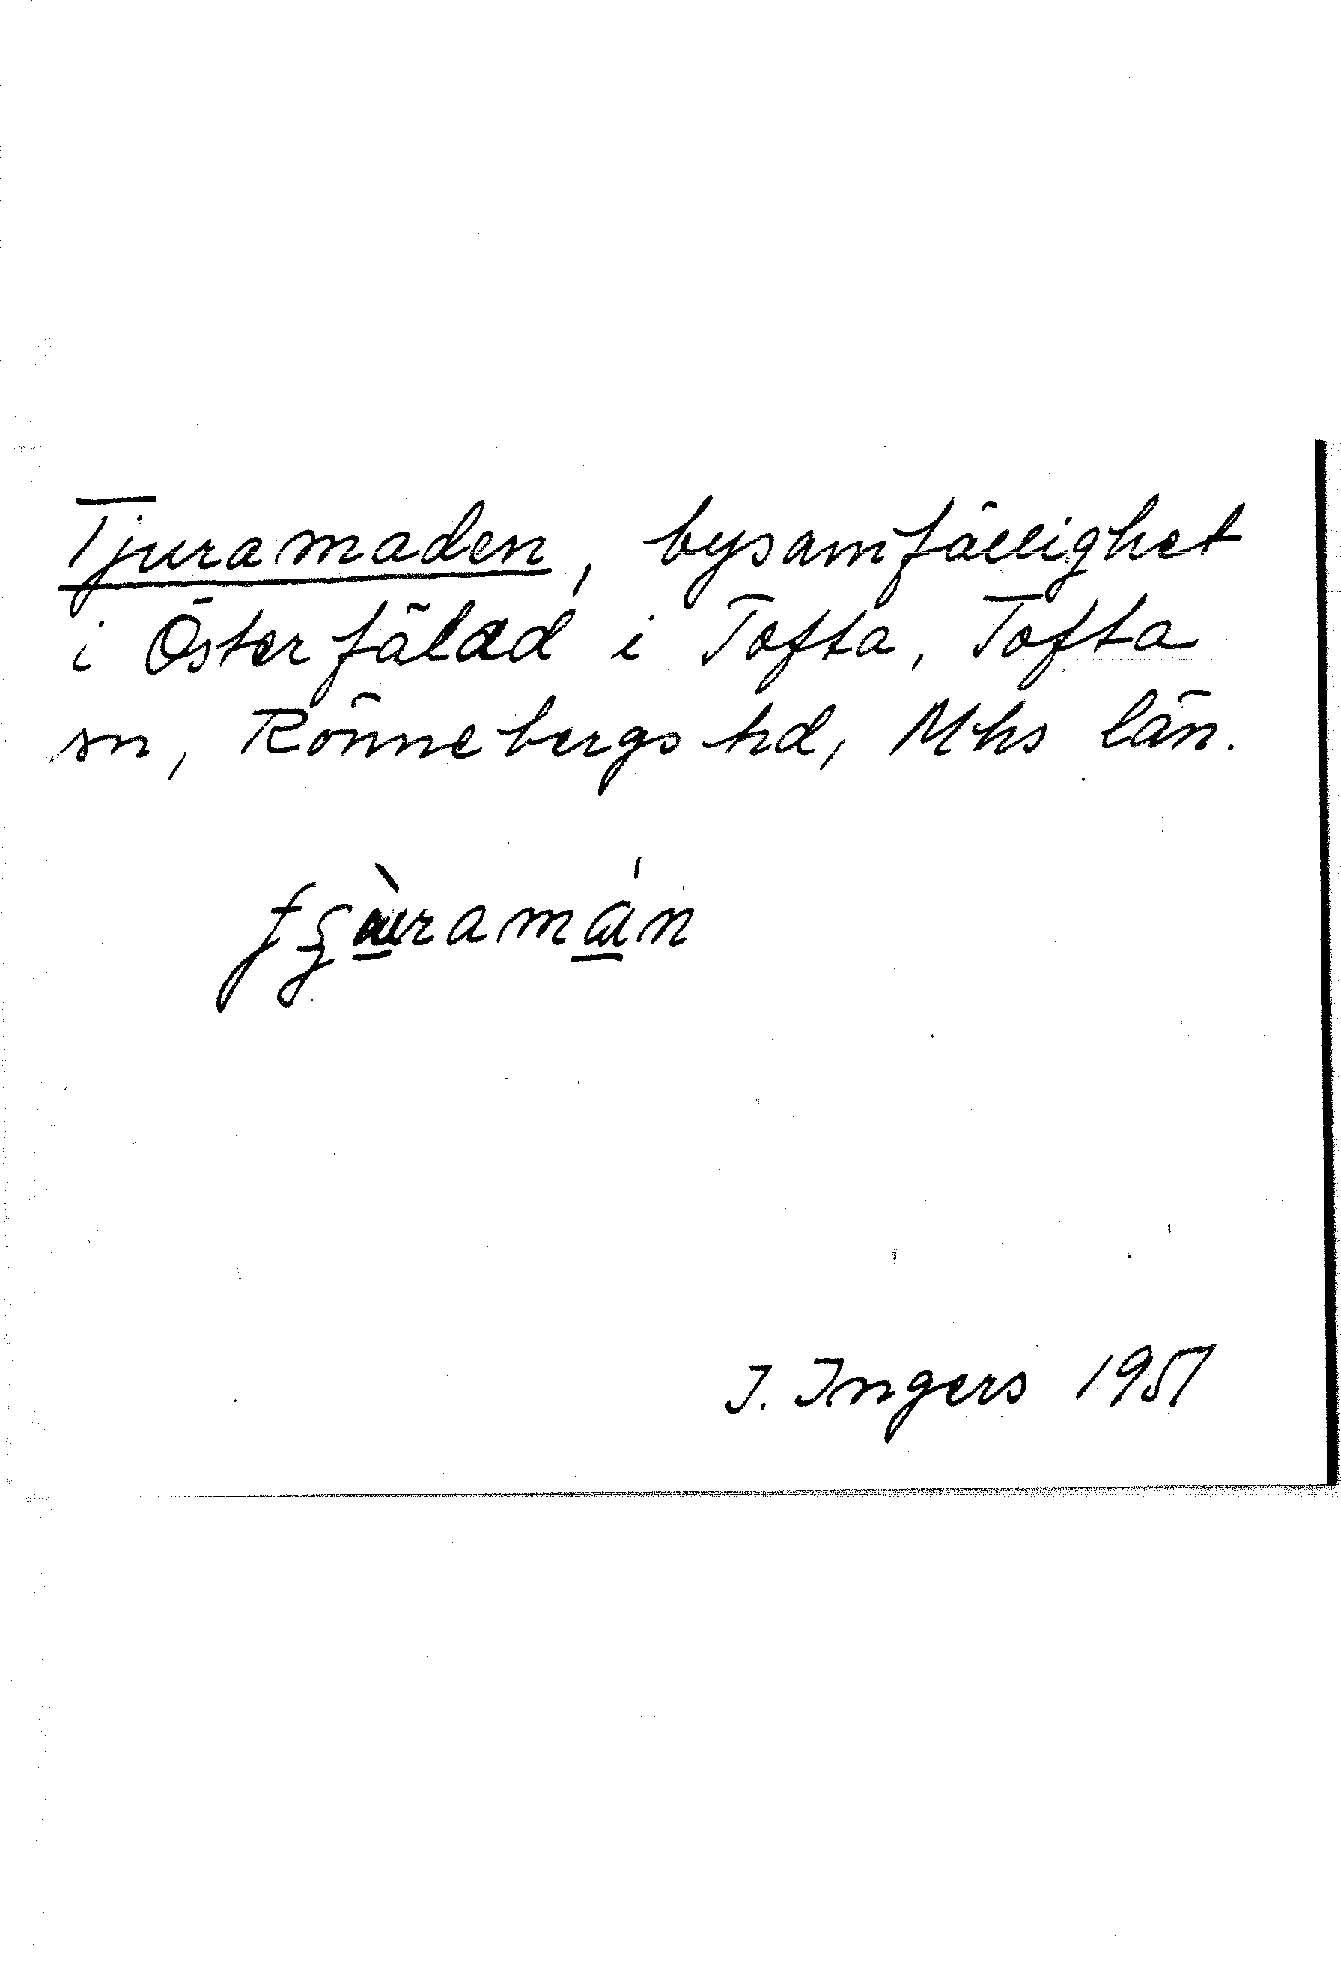 Tjuramaden, bysamfällighet
i Österfälad i Tofta, Tofta
sn, Rönnebergs hd, Mhs län.
I. Ingers 1951